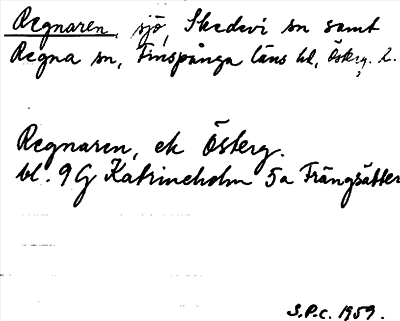 Regnaren, sjö, Skedevi sn samt
Regna sn, Finspånga läns hd, Österg. l.
Regnaren, ek Österg.
bl. 9G Katrineholm 5a Frängsätter
S.P.c. 1959.